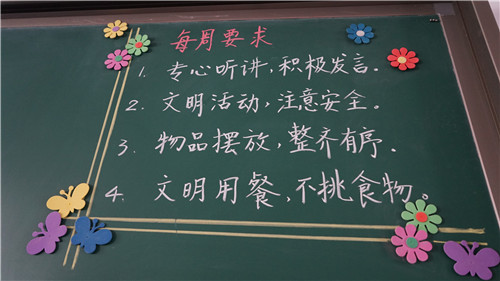 每周要求
1. 专心听讲,积极发言.
2. 文明活动,注意安全。
3. 物品摆放,整齐有序.
4. 文明用餐,不挑食物。